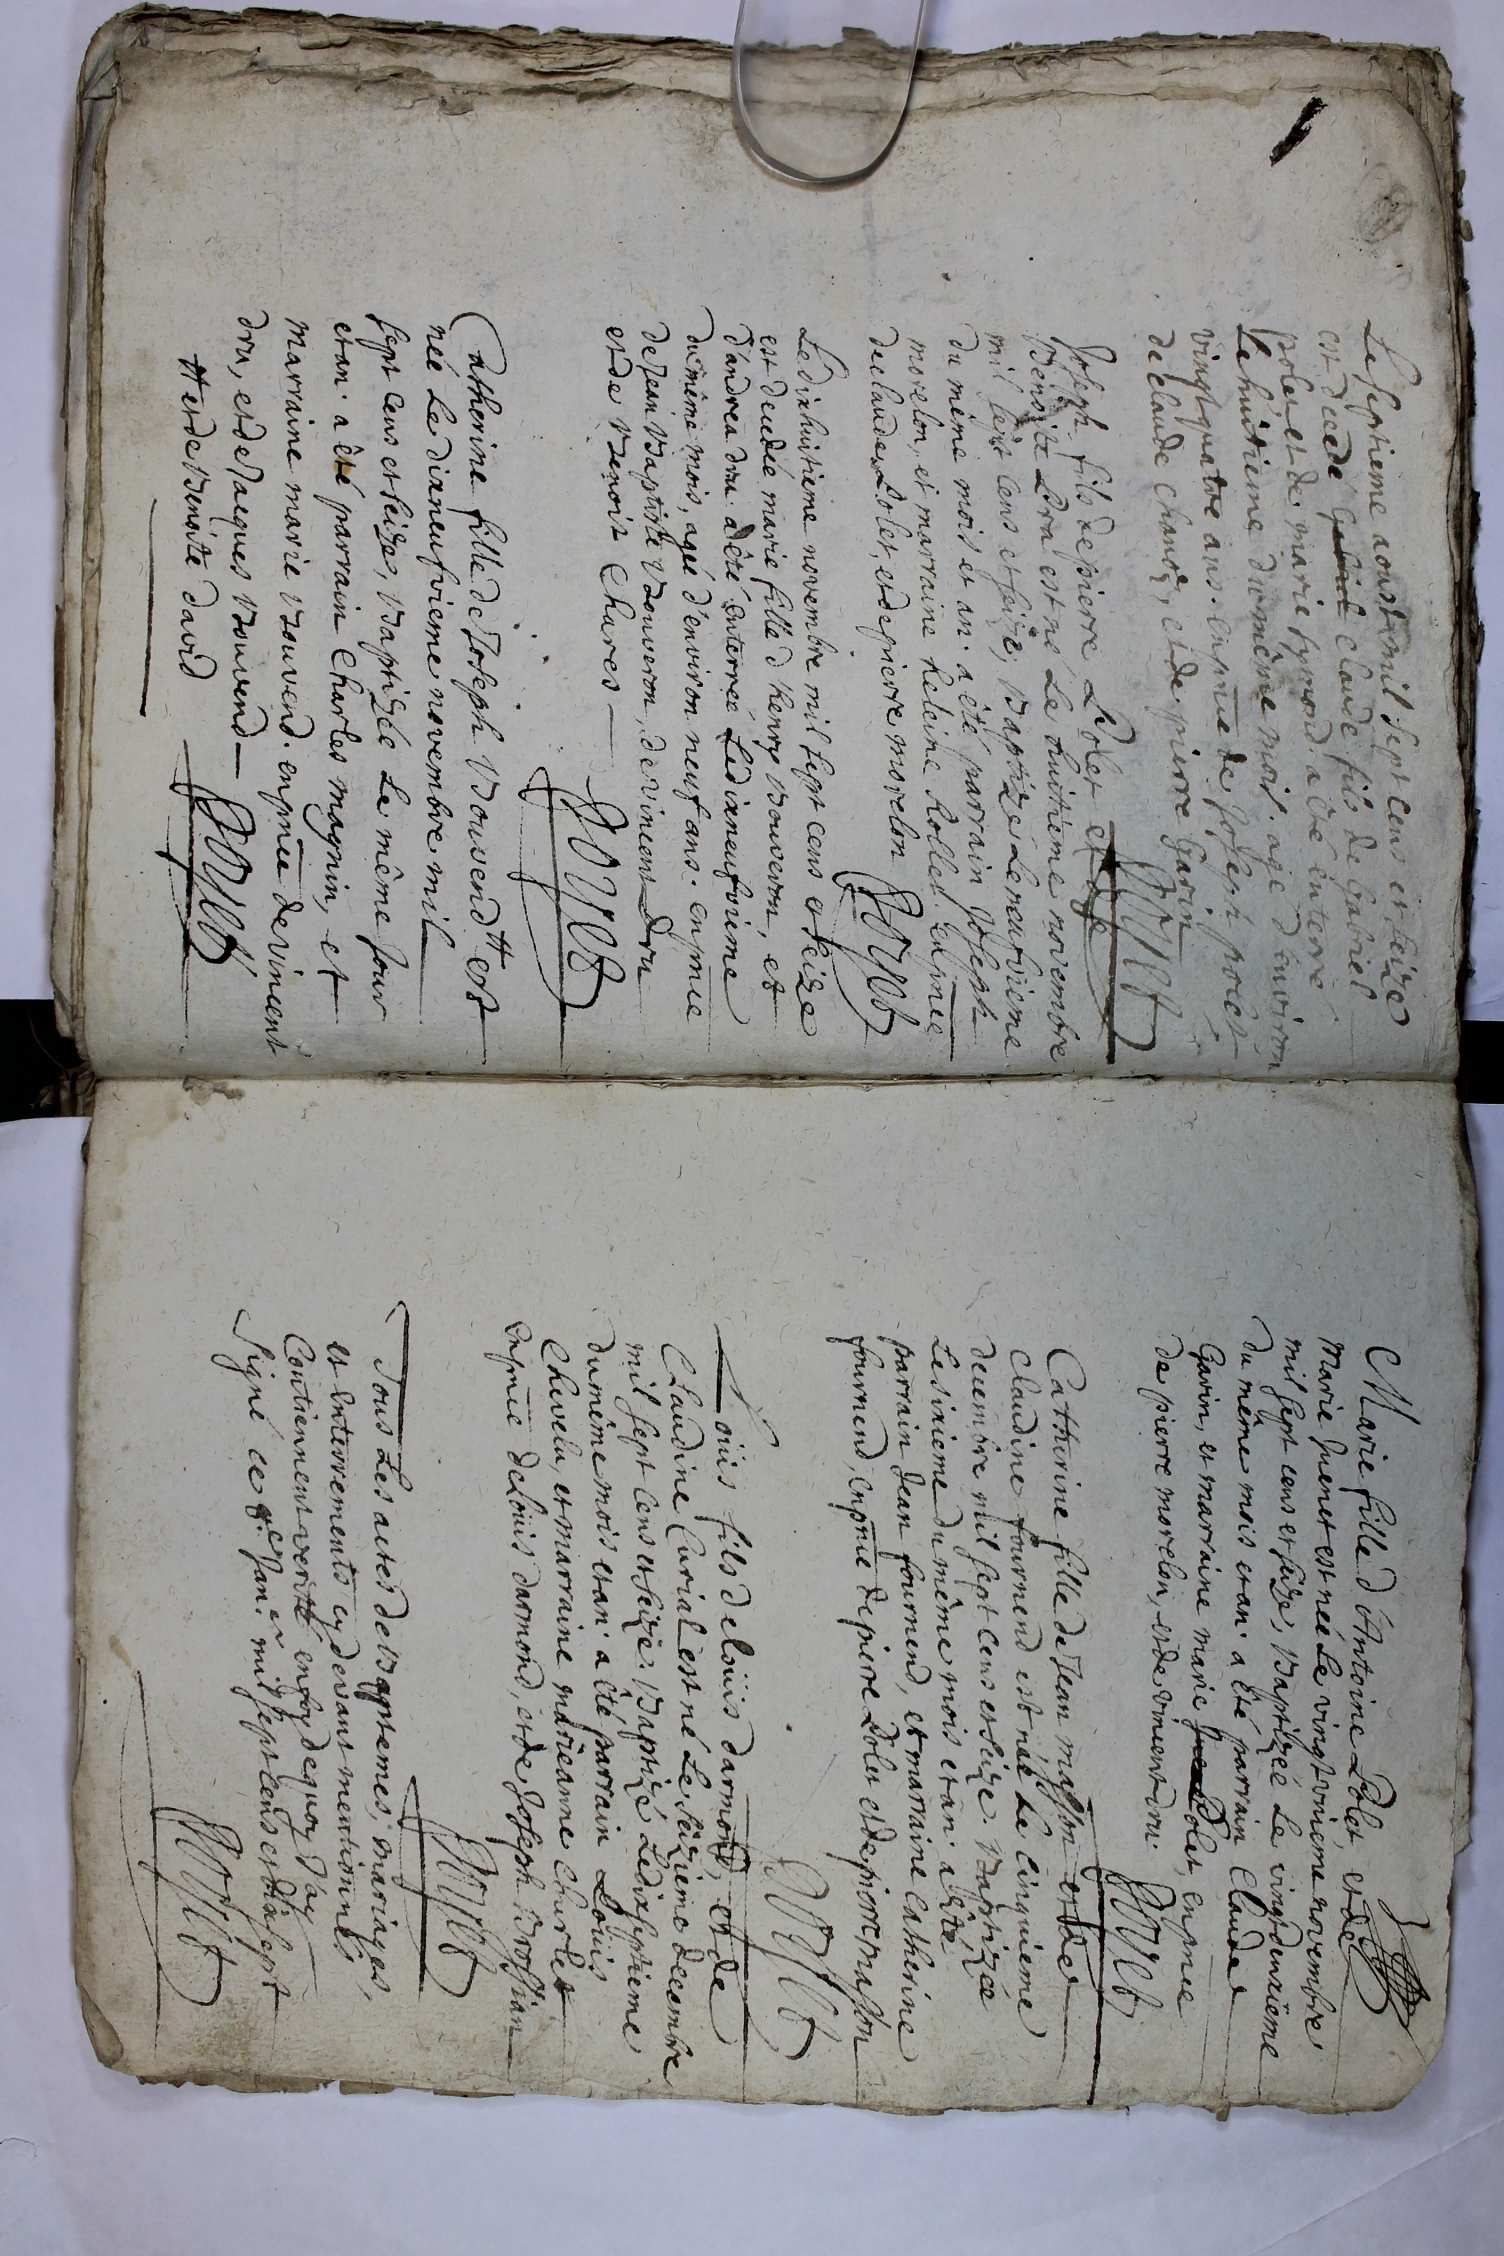 Le septieme aoust mil sept cens et seize
est decedé Gabriel claude fils de Gabriel
polet et de marie symond. a été enterré
Le huitieme du même mois. agé d'environ
vingt quatre ans. en pnce de Joseph polet
de claude chanos, et de pierre Garin
Joseph fils de pierre Polet et de
Benoite Dru est né Le huitieme novembre
mil sept cens et seize, Baptizé Le neufvieme
du même mois et an. a été parrain Joseph
morelon, et marraine heleine Rollet. en pnce
de claude Polet, et de pierre morelon
Le dixhuitieme novembre mil sept cens et seize
est decedée marie fille d'henry Bouveron, et
d'andrea dru. a été enterrée Le dixneufvieme
du même mois, agée d'environ neuf ans. en pnce
de Jean Baptiste Bouveron, de vincent dru
et de Benoit Chares
Catherine fille de Joseph Bouvend # est
née Le dixneufvieme novembre mil
sept cens et seize, Baptizée Le même jour
et an. a été parrain Charles magnin, et
marraine marie Bouvend. en pnce de vincent
dru, et de Jacques Bouvend
# et de Benoite david
Marie fille d'Antoine Polet, et de
Marie Guenet est née Le vingt unieme novembre
mil sept cens et seize, Baptizée Le vingt deuxieme
du même mois et an. a été parrain Claude
Garin, et marraine marie Polet, en pnce
de pierre morelon, et de vincent dru.
Catherine fille de Jean masson et de
Claudine fournend est née Le cinquieme
decembre mil sept cens et seize. Baptizée
Le sixieme du même mois et an. a été
parrain Jean fournend, et marraine Catherine
fournend, en pnce de pierre Polet et de pierre masson
Louis fils de Loüis darmond, et de
Claudine Curial est né Le seizieme decembre
mil sept cens et seize. Baptizé Le dixseptieme
du même mois et an. a été parrain Loüis
Chevelu, et marraine marieanne Charlet
en pnce de Loüis darmond, et de Joseph Brossian
Tous Les actes de Baptemes, mariages,
et enterrements cy devant mentionnés
Contiennent verité en foy de quoy J'ay
Signé ce Jan.er mil sept cens et dix sept